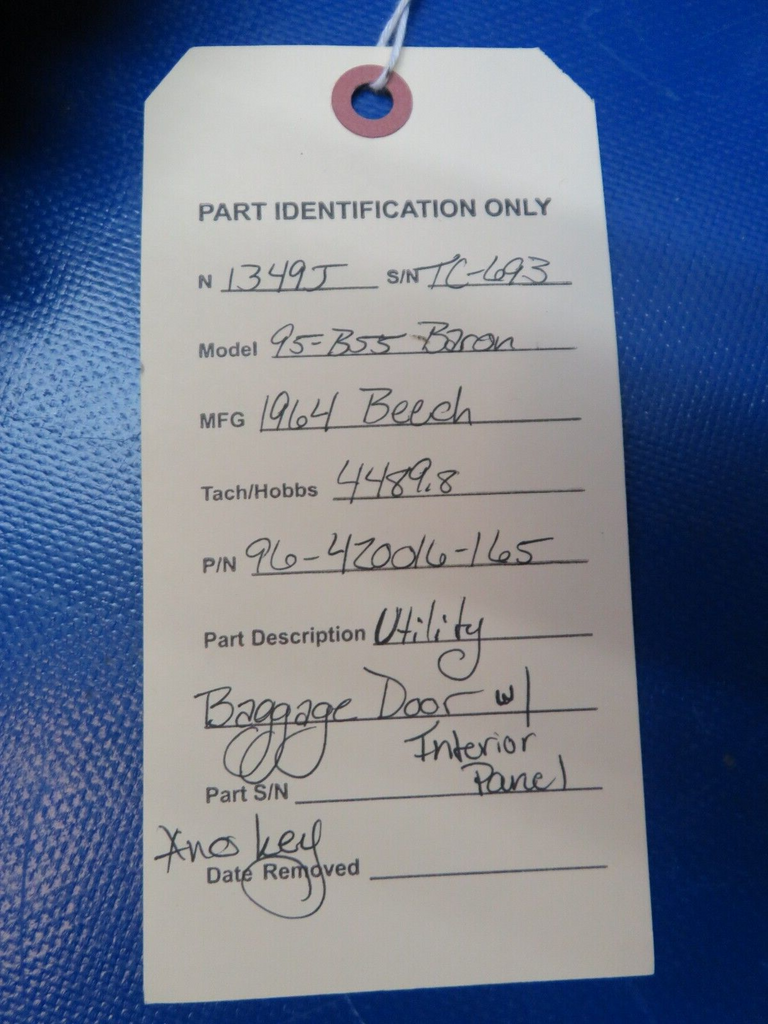 PART IDENTIFICATION ONLY
N 1349J S/N TC-693
Model 95-B55 Baron
MFG 1964 Beech
Tach/Hobbs 4489.8
P/N 96-420016-165
Part Description Utility
Baggage Door w/
Interior
Panel
Part S/N
*no key
Date Removed